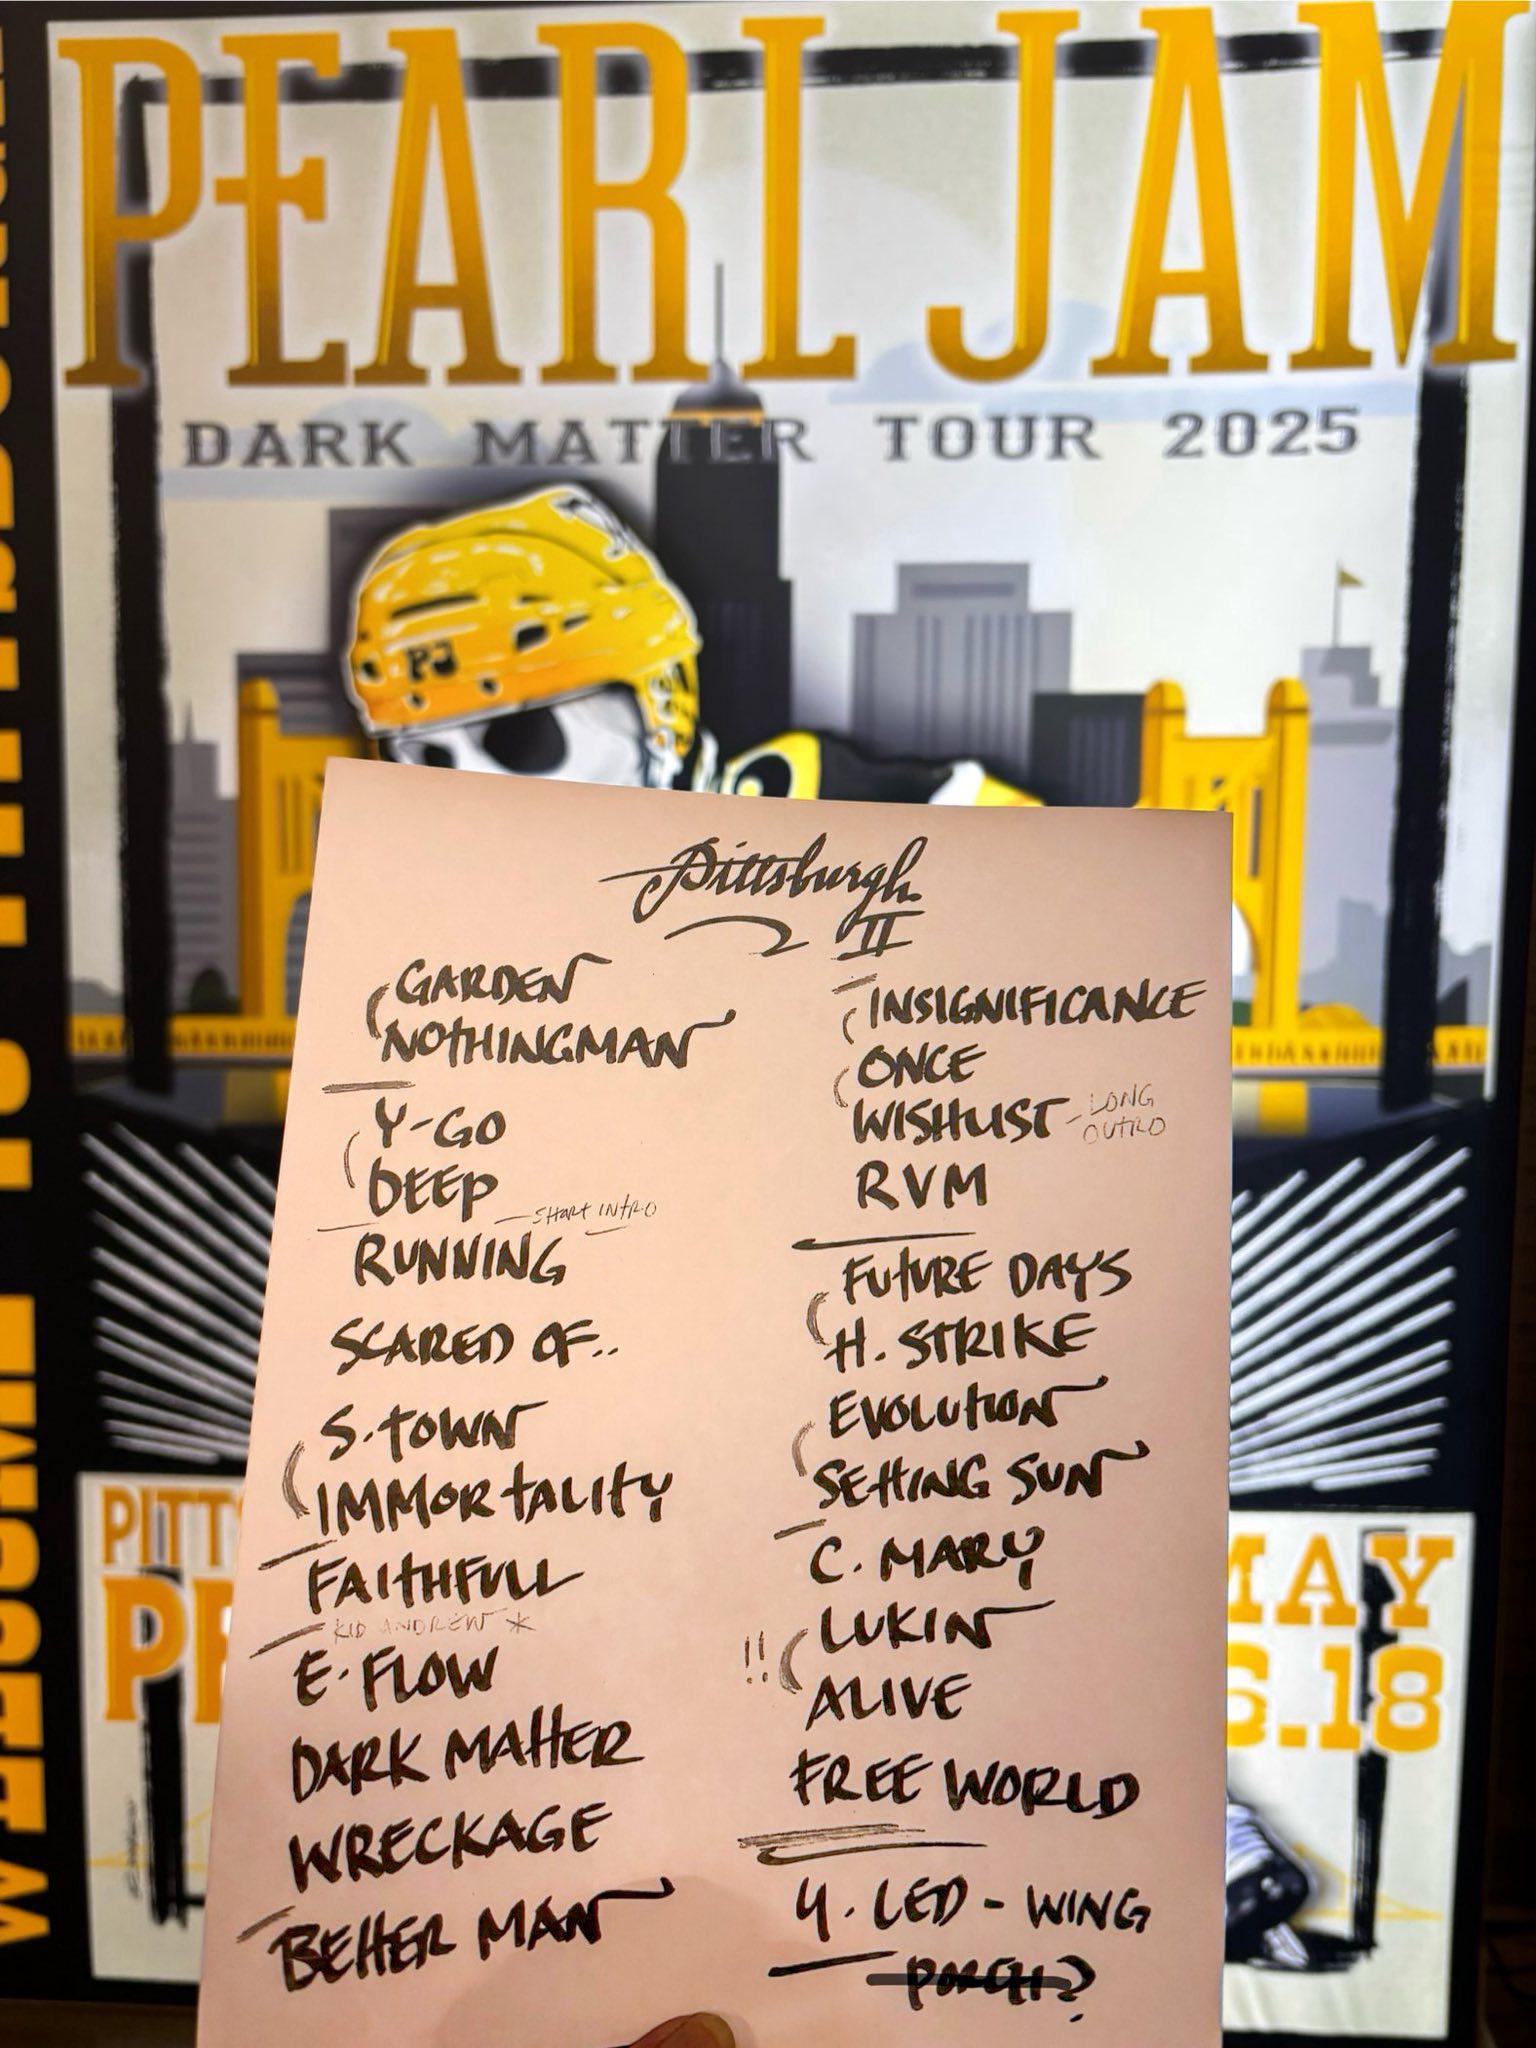 PEARL JAM
DARK MATTER TOUR 2025
PJ
Pittsburgh
II
GARDEN
NOTHINGMAN
Y-GO
DEEP
RUNNING
- SHORT INTRO
SCARED OF..
S.TOWN
IMMORTALITY
FAITHFULL
KID ANDREW *
E.FLOW
DARK MATTER
WRECKAGE
BETTER MAN
INSIGNIFICANCE
ONCE
WISHLIST - LONG
OUTRO
RVM
FUTURE DAYS
H. STRIKE
EVOLUTION
SETTING SUN
C. MARY
!! LUKIN
ALIVE
FREE WORLD
Y. LED - WING
PORCH?
PITT
PE
MAY
6.18